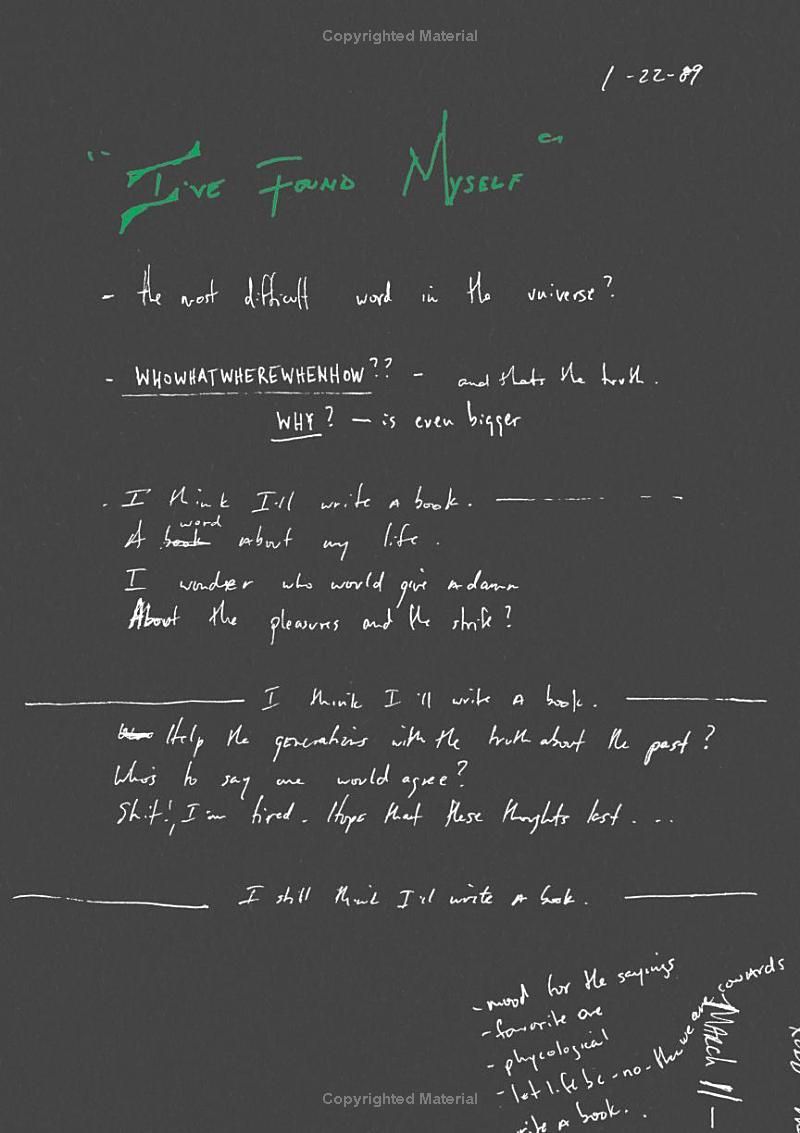 Copyrighted Material
1-22-89
"I've Found Myself"
- the most difficult word in the universe?
- WHOWHATWHEREWHENHOW?? - and thats the truth.
WHY? — is even bigger
- I think I'll write a book. — - - -
A book word about my life.
I wonder who would give a damn
About the pleasures and the strife?
I think I'll write a book.
Help the generations with the truth about the past?
Who's to say one would agree?
Shit!, I am tired. Hope that these thoughts last. . . .
I still think I'll write a book.
- mood for the sayings
- favorite are
- phycological
- let life be - no - the we are cowards
write a book. . .
MARCH 11 —
Copyrighted Material